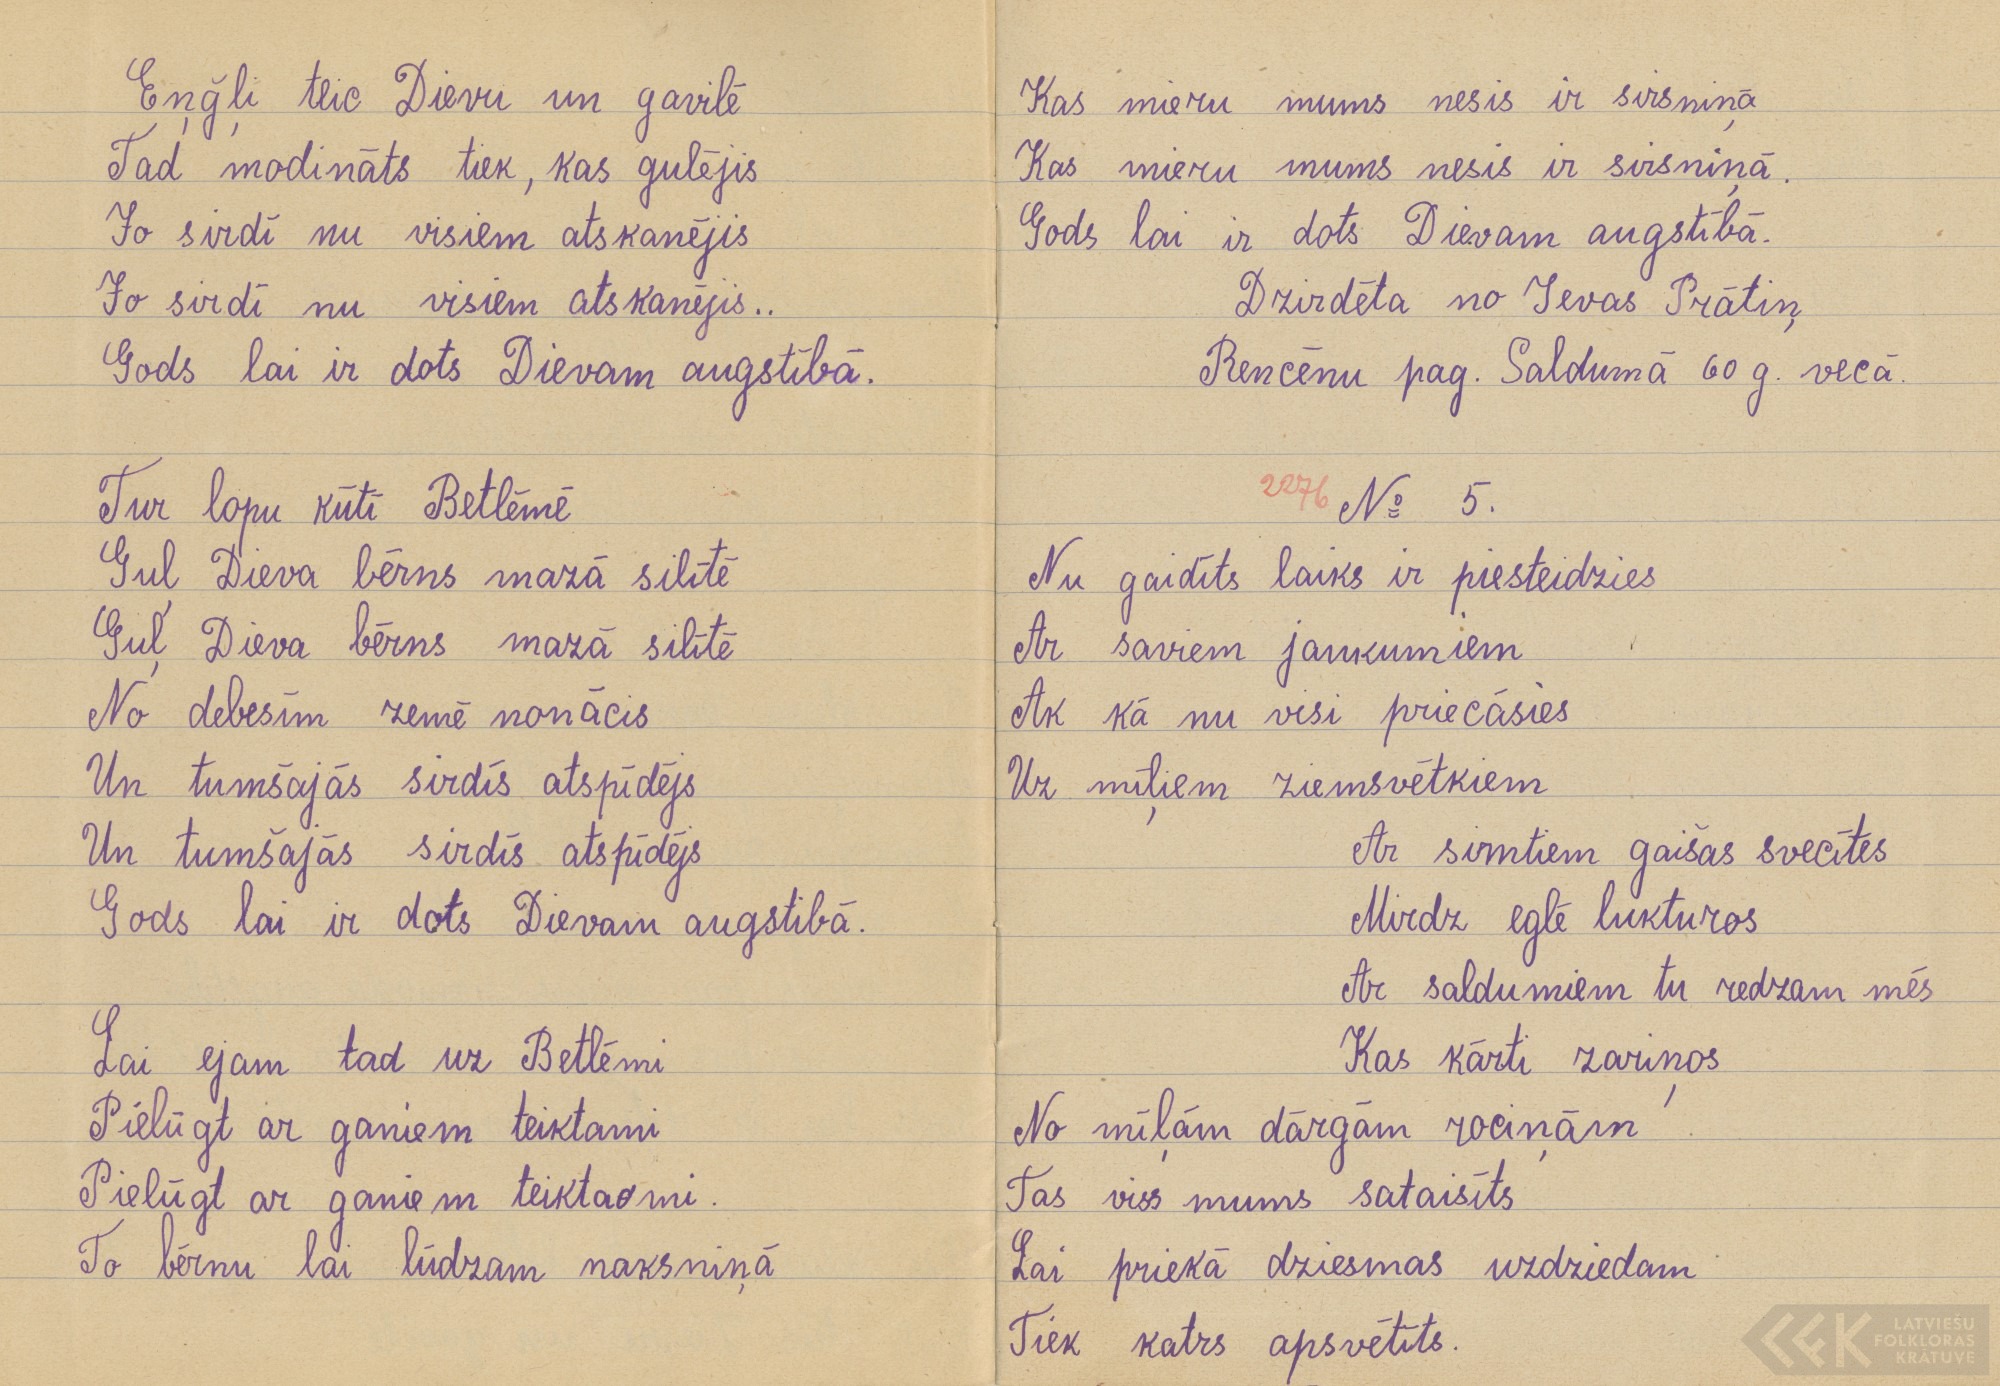 Eņģļi teic Dievu un gavilē
Tad modināts tiek, kas gulējis
Jo sirdī nu visiem atskanējis
Jo sirdī nu visiem atskanējis..
Gods lai ir dots Dievam augstībā.
Tur lopu kūtī Betlēmē
Guļ Dieva bērns mazā silītē
Guļ Dieva bērns mazā silītē
No debesīm zemē nonācis
Un tumšajās sirdīs atspīdējs
Un tumšajās sirdīs atspīdējs
Gods lai ir dots Dievam augstibā.
Lai ejam tad uz Betlēmi
Pielūgt ar ganiem teiktami
Pielūgt ar ganiem teiktami.
To bērnu lai lūdzam naksniņā
Kas mieru mums nesis ir sirsniņā
Kas mieru mums nesis ir sirsniņā.
Gods lai ir dots Dievam augstībā.
Dzirdēta no Ievas Prātiņ
Rencēnu pag. Saldumā 60 g. vecā.
2276 № 5.
Nu gaidīts laiks ir piesteidzies
Ar saviem jaukumiem
Ak kā nu visi priecāsies
Uz mīļiem ziemsvētkiem
Ar simtiem gaišas svecītes
Mirdz eglē lukturos
Ar saldumiem tu redzam mēs
Kas kārti zariņos
No mīļām dārgām rociņām
Tas viss mums sataisīts
Lai priekā dziesmas uzdziedam
Tiek katrs apsvētīts.
LATVIEŠU
FOLKLORAS
KRĀTUVE